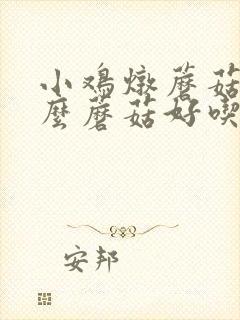 小鸡燉蘑菇
麼蘑菇好喫
安邦